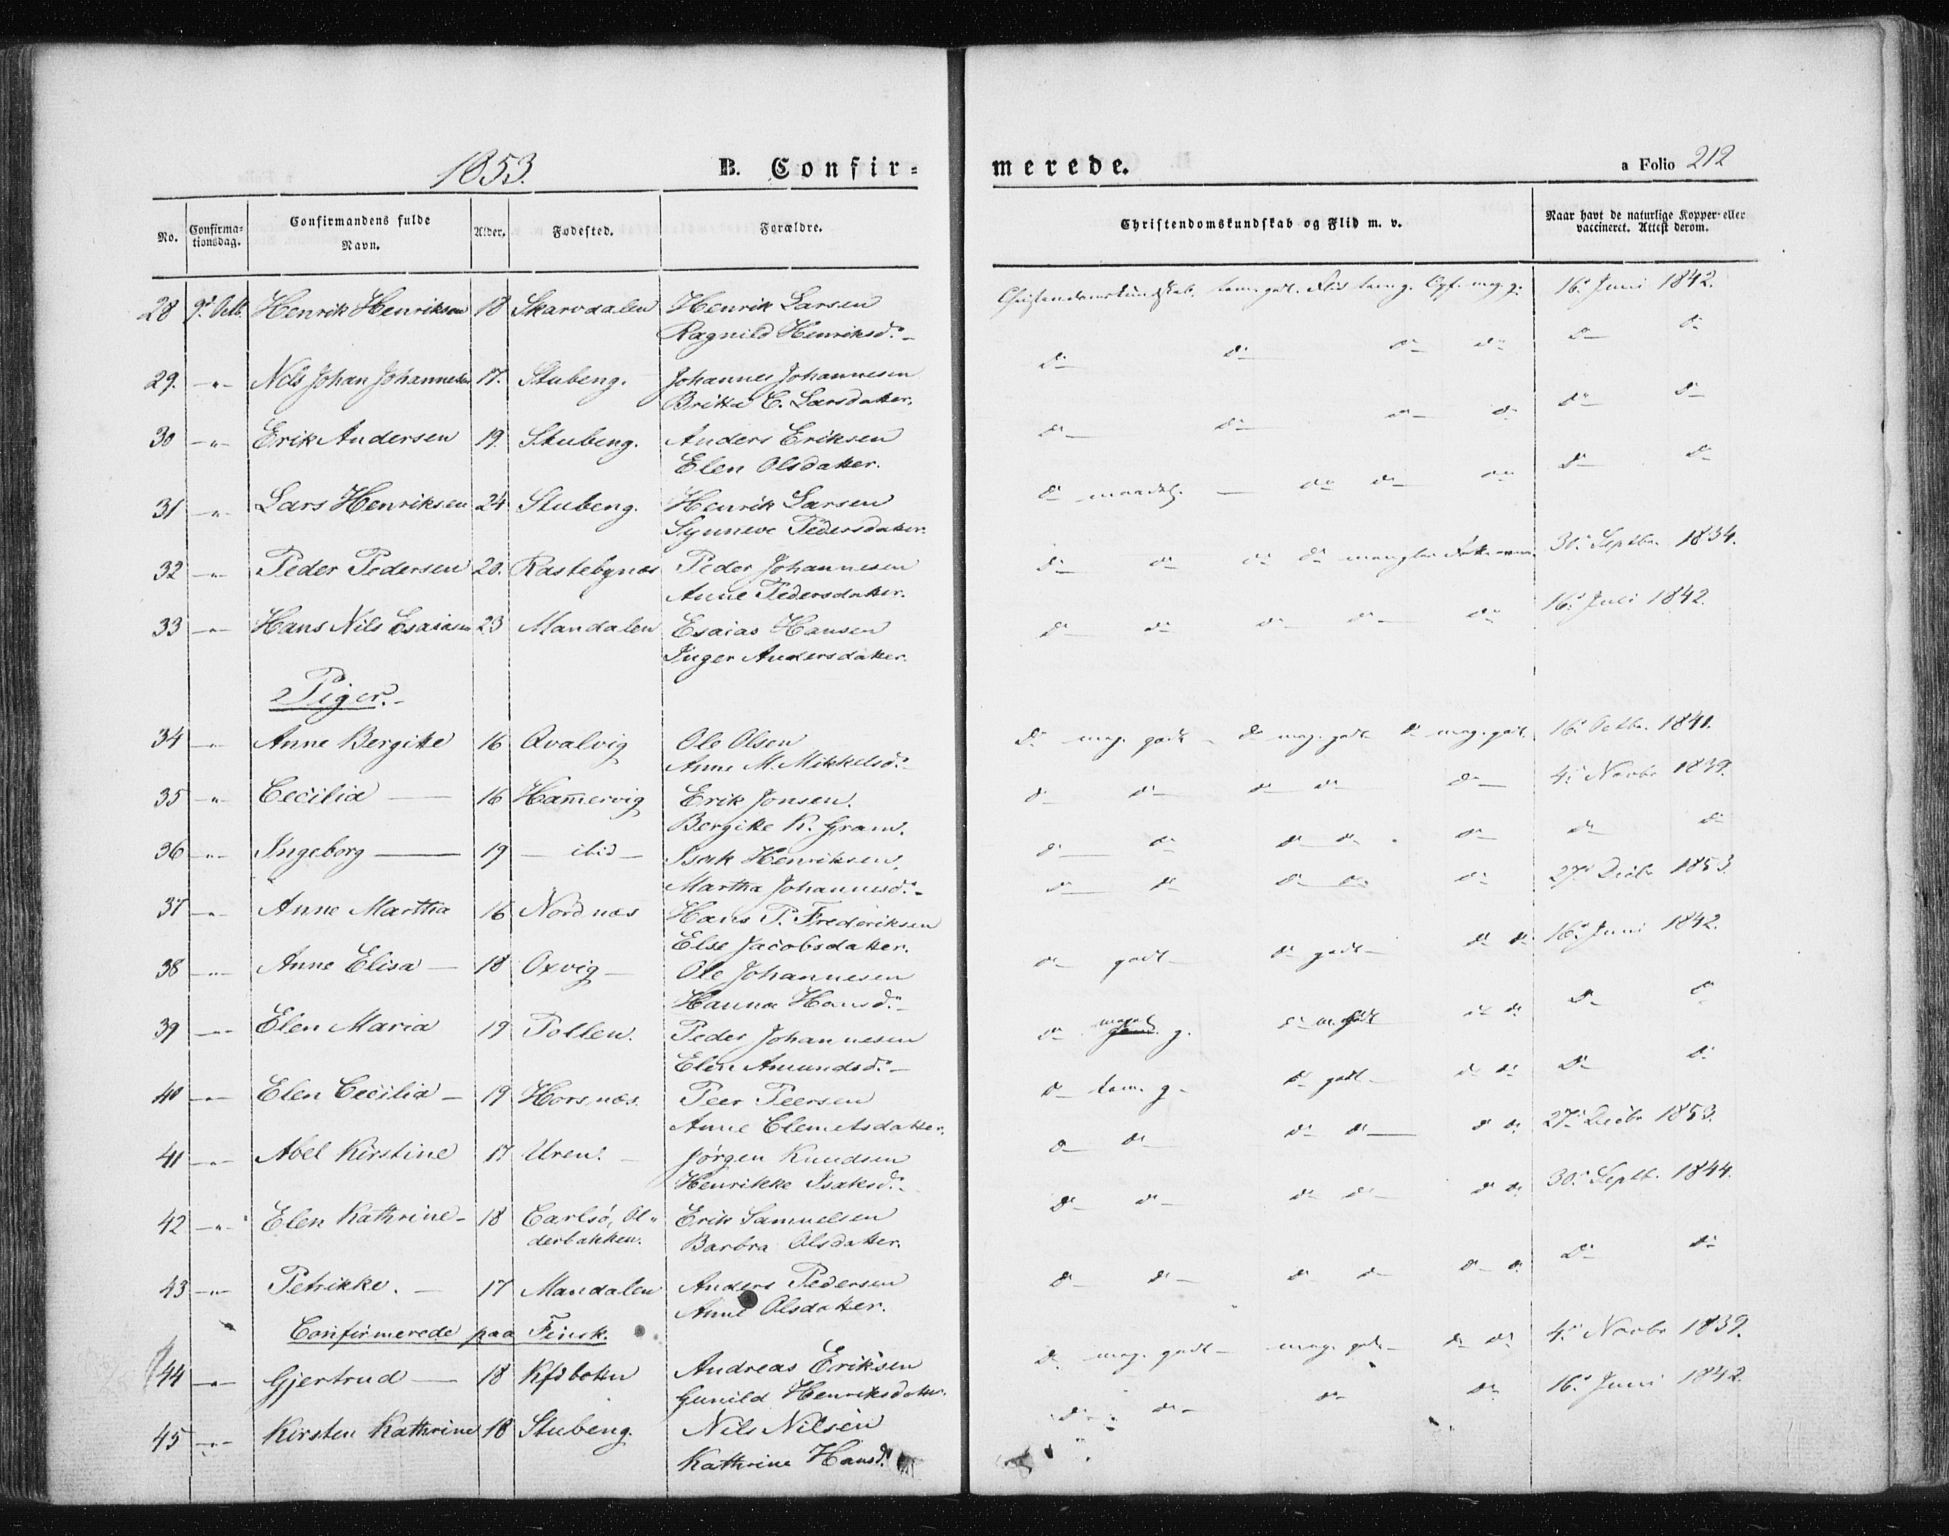 1853.
B. Confir=
merede.
a Folio 212
No.
Confirma-
tionsdag.
Confirmandens fulde
Navn.
Alder.
Fødested.
Forældre.
Christendomskundskab og Flid m. v.
Naar havt de naturlige Kopper eller
vaccineret. Attest derom.
28 9d Octb. Henrik Henriksen 18 Skarvdalen Henrik Larsen Christendomskundskab. tem. godt. Flid tem g. Opf. meg. g. 16d Juni 1842.
Ragnild Henriksd.
29. -"- Nils Johan Johannesen 17. Stubeng. Johannes Johannesen do do do do do do
Britta C. Larsdatter.
30 -"- Erik Andersen 19. Stubeng. Anders Eriksen do do do do do do
Elen Olsdatter.
31 -"- Lars Henriksen 24 Stubeng. Henrik Larsen do maadel. - do do do do do
Synneve Pedersdatter.
32 -"- Peder Pedersen 20. Rastebynæs Peder Johannesen do do do do 30. Septbr 1834.
Anne Pedersdatter.
33 -"- Hans Nils Esaiasen 23 Mandalen Esaias Hansen do do do do do 16d Juli 1842.
Inger Andersdatter.
Piger.
34 -"- Anne Bergitte 16 Qvalvig Ole Olsen do meg. godt do meg. godt do meg. godt 16. Octbr 1841.
Anne M. Mikkelsd.
35 -"- Cecilia 16 Ham̅ervig Erik Jonsen. do do do do do 4. Novbr 1839.
Bergitte K. Gram.
36 -"- Ingeborg 19 - ibid - Isak Henriksen, do do do do do do do
Martha Johannesd.
37 -"- Anne Martha 16 Nordnæs Hans P. Frederiksen do do do do do 27d Decbr 1853.
Else Jacobsdatter.
38 -"- Anne Elisa 18 Oxvig Ole Johannesen do godt do godt do do 16d Juni 1842.
Hanna Hansd.
39 -"- Elen Maria 19 Pollen. Peder Johannesen do g. do m. godt do do do do
Elen Amundsd.
40 -"- Elen Cecilia 19 Horsnæs. Peer Peersen do tem. g. do godt do do do do
Anne Clemetsdatter.
41 -"- Abel Kirstine 17 Uren. Jørgen Knudsen do do do do do do 27d Decbr 1853.
Henrikke Isaksd.
42 -"- Elen Kathrine 18 Carlsø, Ol- Erik Samuelsen do do do do do do 30. Septb. 1844.
derbakken. Barbra Olsdatter.
43 -"- Petrikke. 17 Mandalen Anders Pedersen do do do do do do do do
Anne Olsdatter.
Confirmerede paa Finsk.
44 -"- Gjertrud 18 Kfdbotten Andreas Eriksen do meg. godt meg. godt do do 4. Novbr 1839.
Gunild Henriksdatter.
45 -"- Kirsten Kathrine 18 Stubeng. Nils Nilsen do do do do 16d Juni 1842.
Kathrine Hansd.